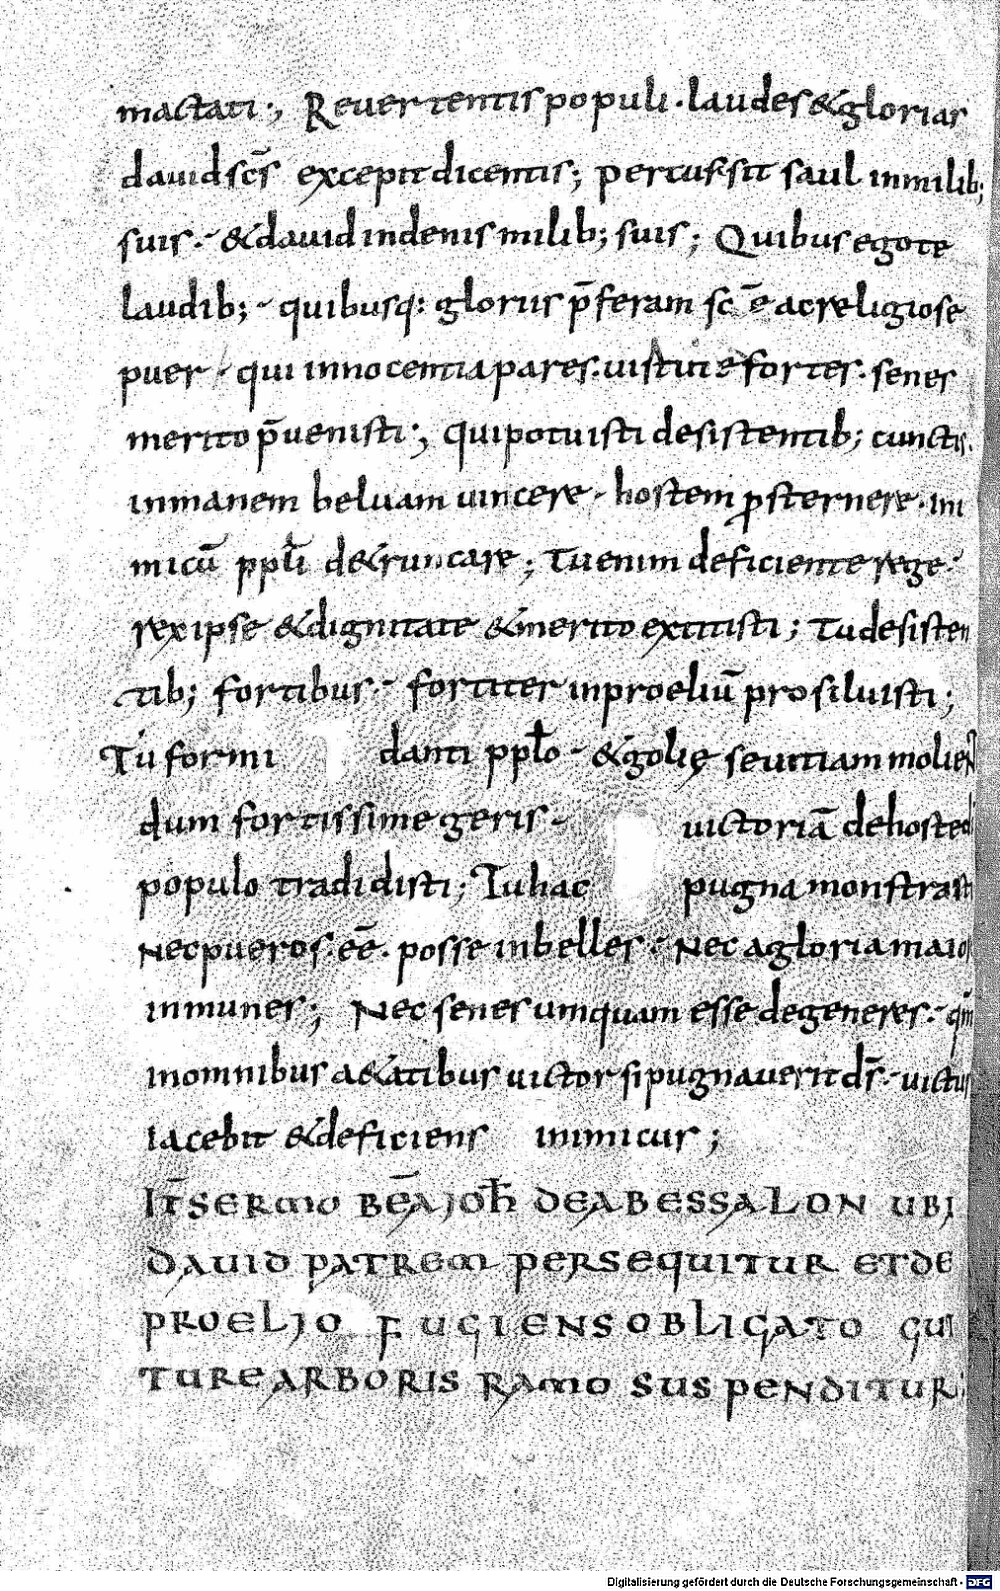 mactati·, Reuertentis populi · laudes & glorias
dauid sc̄s excepit dicentis; percussit saul in milib;
suis ·- & dauid in denis milib; suis; Quibus ego te
laudib; - quibusq: gloriis p̄feram sc̄e ac religiose
puer - qui innocentia pares · uirtute fortes · senes
merito p̄uenisti·, qui potuisti desistentib; cunctis·
inmanem beluam uincere - hostem ꝓsternere · ini
micū ppłi de&runcare; Tu enim deficiente rege·-
rex ipse & dignitate & merito extitisti; Tu desisten
tib; fortibus ·- fortiter in proeliū prosiluisti;
Tu formi danti pplo - & golię seuitiam molien
dum fortissime geris - uictoriā de hoste
populo tradidisti; Tu hac pugna monstrasti
Nec pueros· eē · posse inbelles ·- Nec a gloria maio
inmunes; Nec senes umquam esse degeneres ·- qm̄
in omnibus a&atibus uictor si pugnauerit ds̄ ·- uictus
iacebit & deficiens inimicus;
IT̄ SERMO BEA̅ IOH̅ DE ABESSALON UBI
DAUID PATREM PERSEQUITUR ET DE
PROELIO FUGIENS OBLIGATO GUT
TURE ARBORIS RAMO SUSPENDITUR·
Digitalisierung gefördert durch die Deutsche Forschungsgemeinschaft - DFG